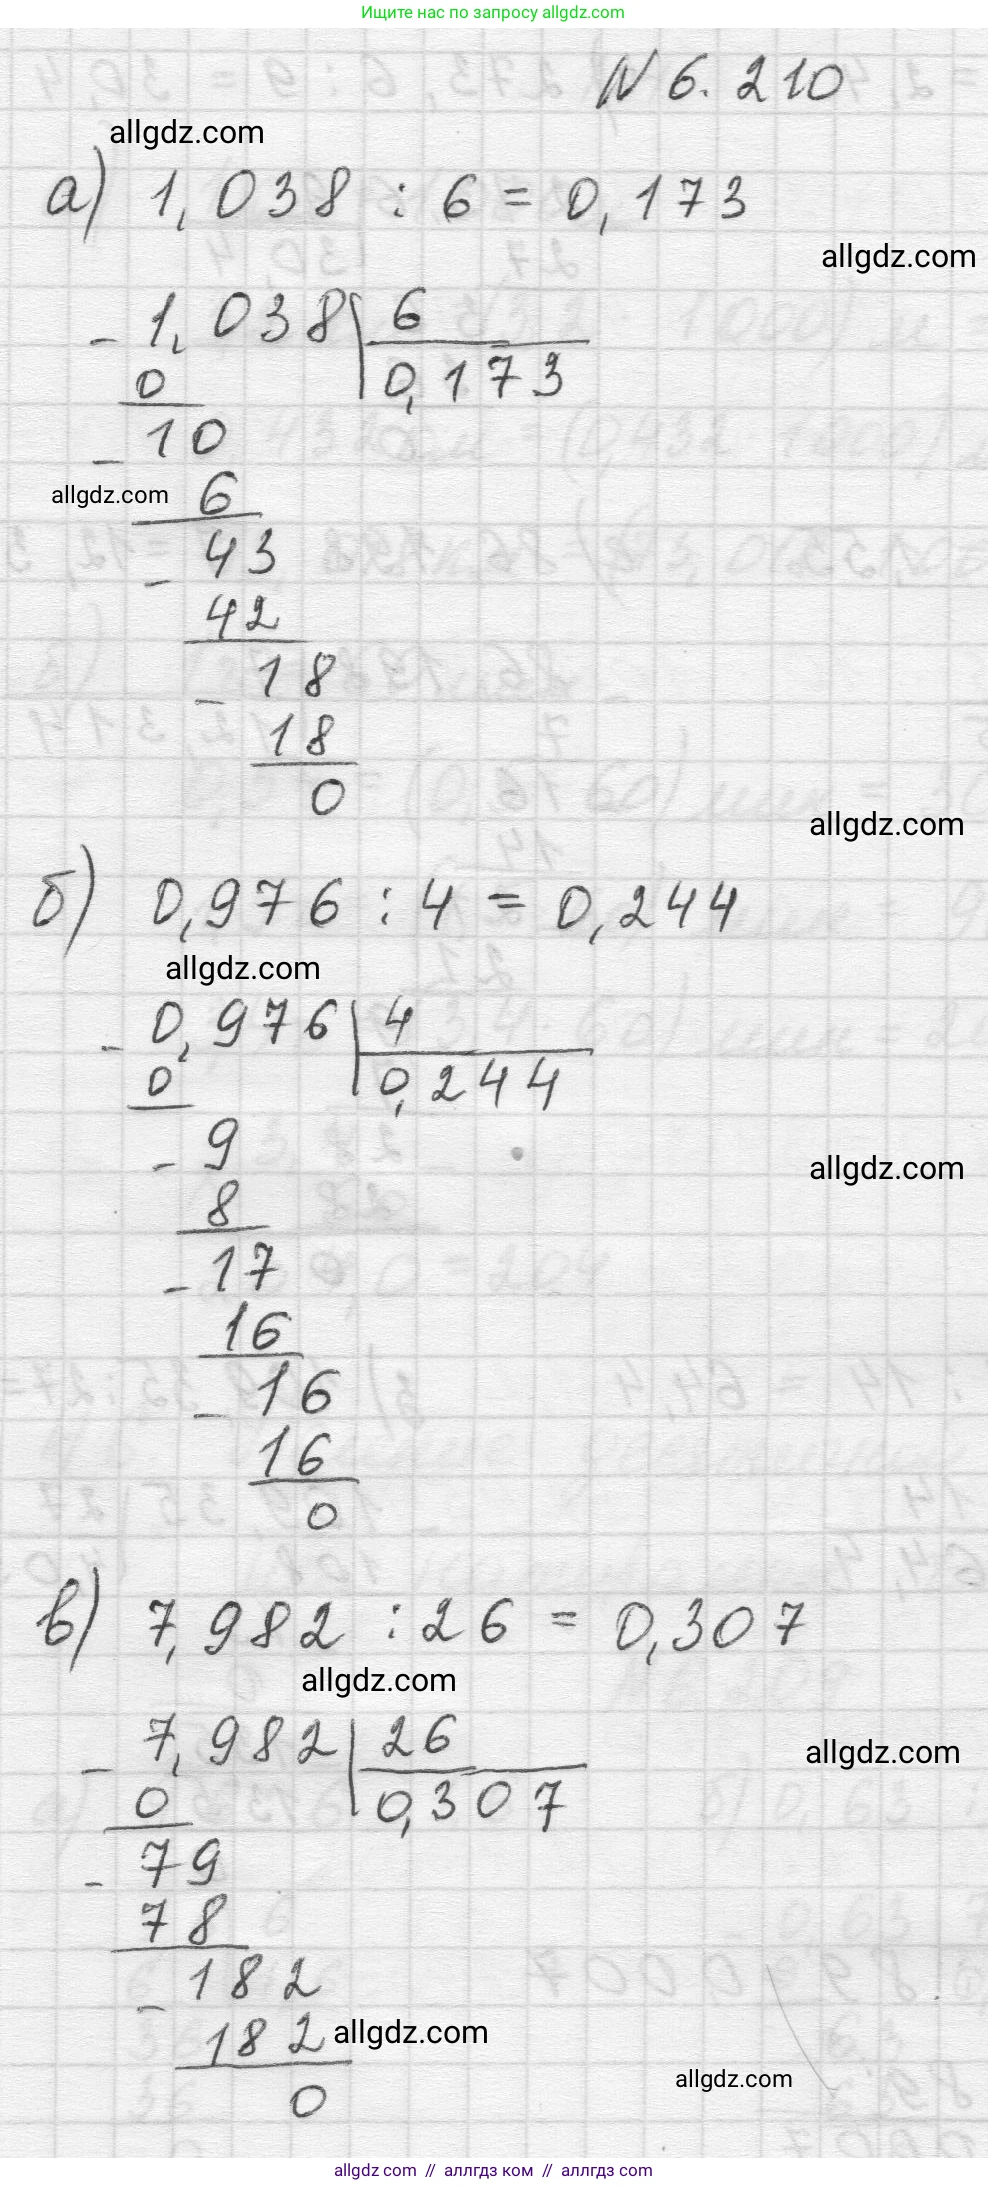 Ищите нас по запросу allgdz.com
N 6.210
allgdz.com
а) 1,038 : 6 = 0,173
allgdz.com
- 1,038 | 6
0 0,173
- 10
allgdz.com 6
- 43
42
- 18
18
0
allgdz.com
б) 0,976 : 4 = 0,244
allgdz.com
- 0,976 | 4
0 0,244
- 9
allgdz.com
8
- 17
16
- 16
16
0
в) 7,982 : 26 = 0,307
allgdz.com
- 7,982 | 26
allgdz.com
0 0,307
- 79
78
- 182
182 allgdz.com
allgdz.com
0
allgdz com // аллгдз ком // аллгдз com